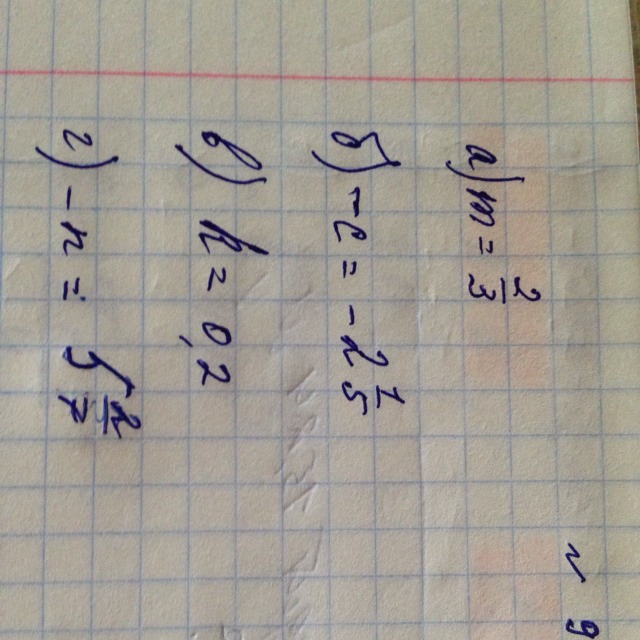 № 9
а) m = 2/3
б) -c = -2 1/5
в) k = 0,2
г) -n = 5 2/7